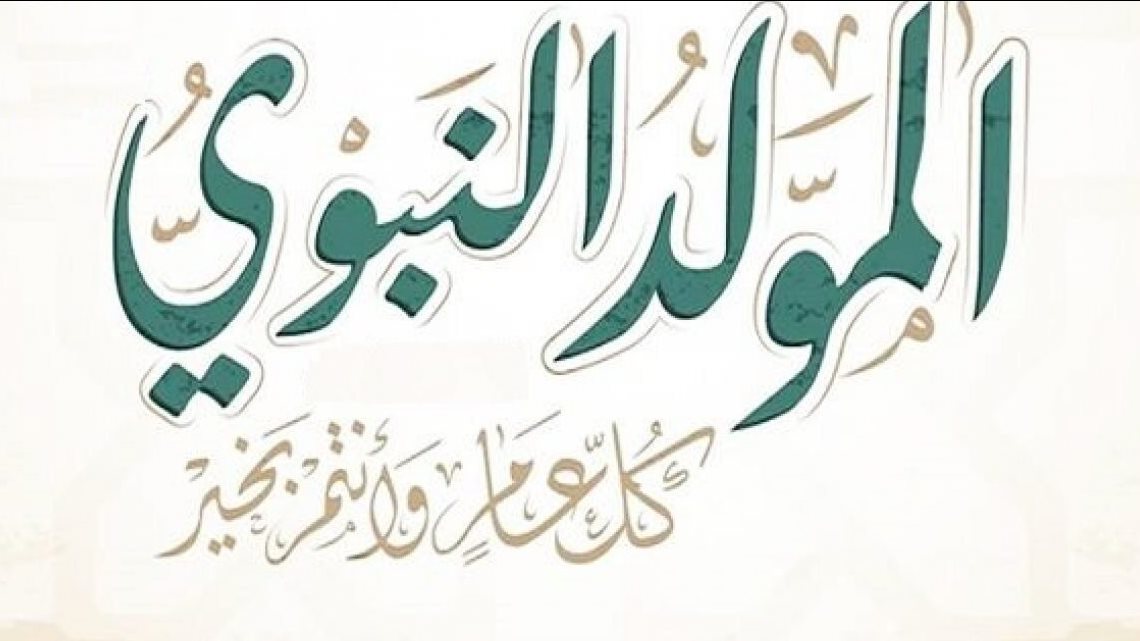 المَوَّلِدُ النَبَوْيُّ
كُلُّ عَامٍ وَأَنْتُمْ بَخَيْرْ